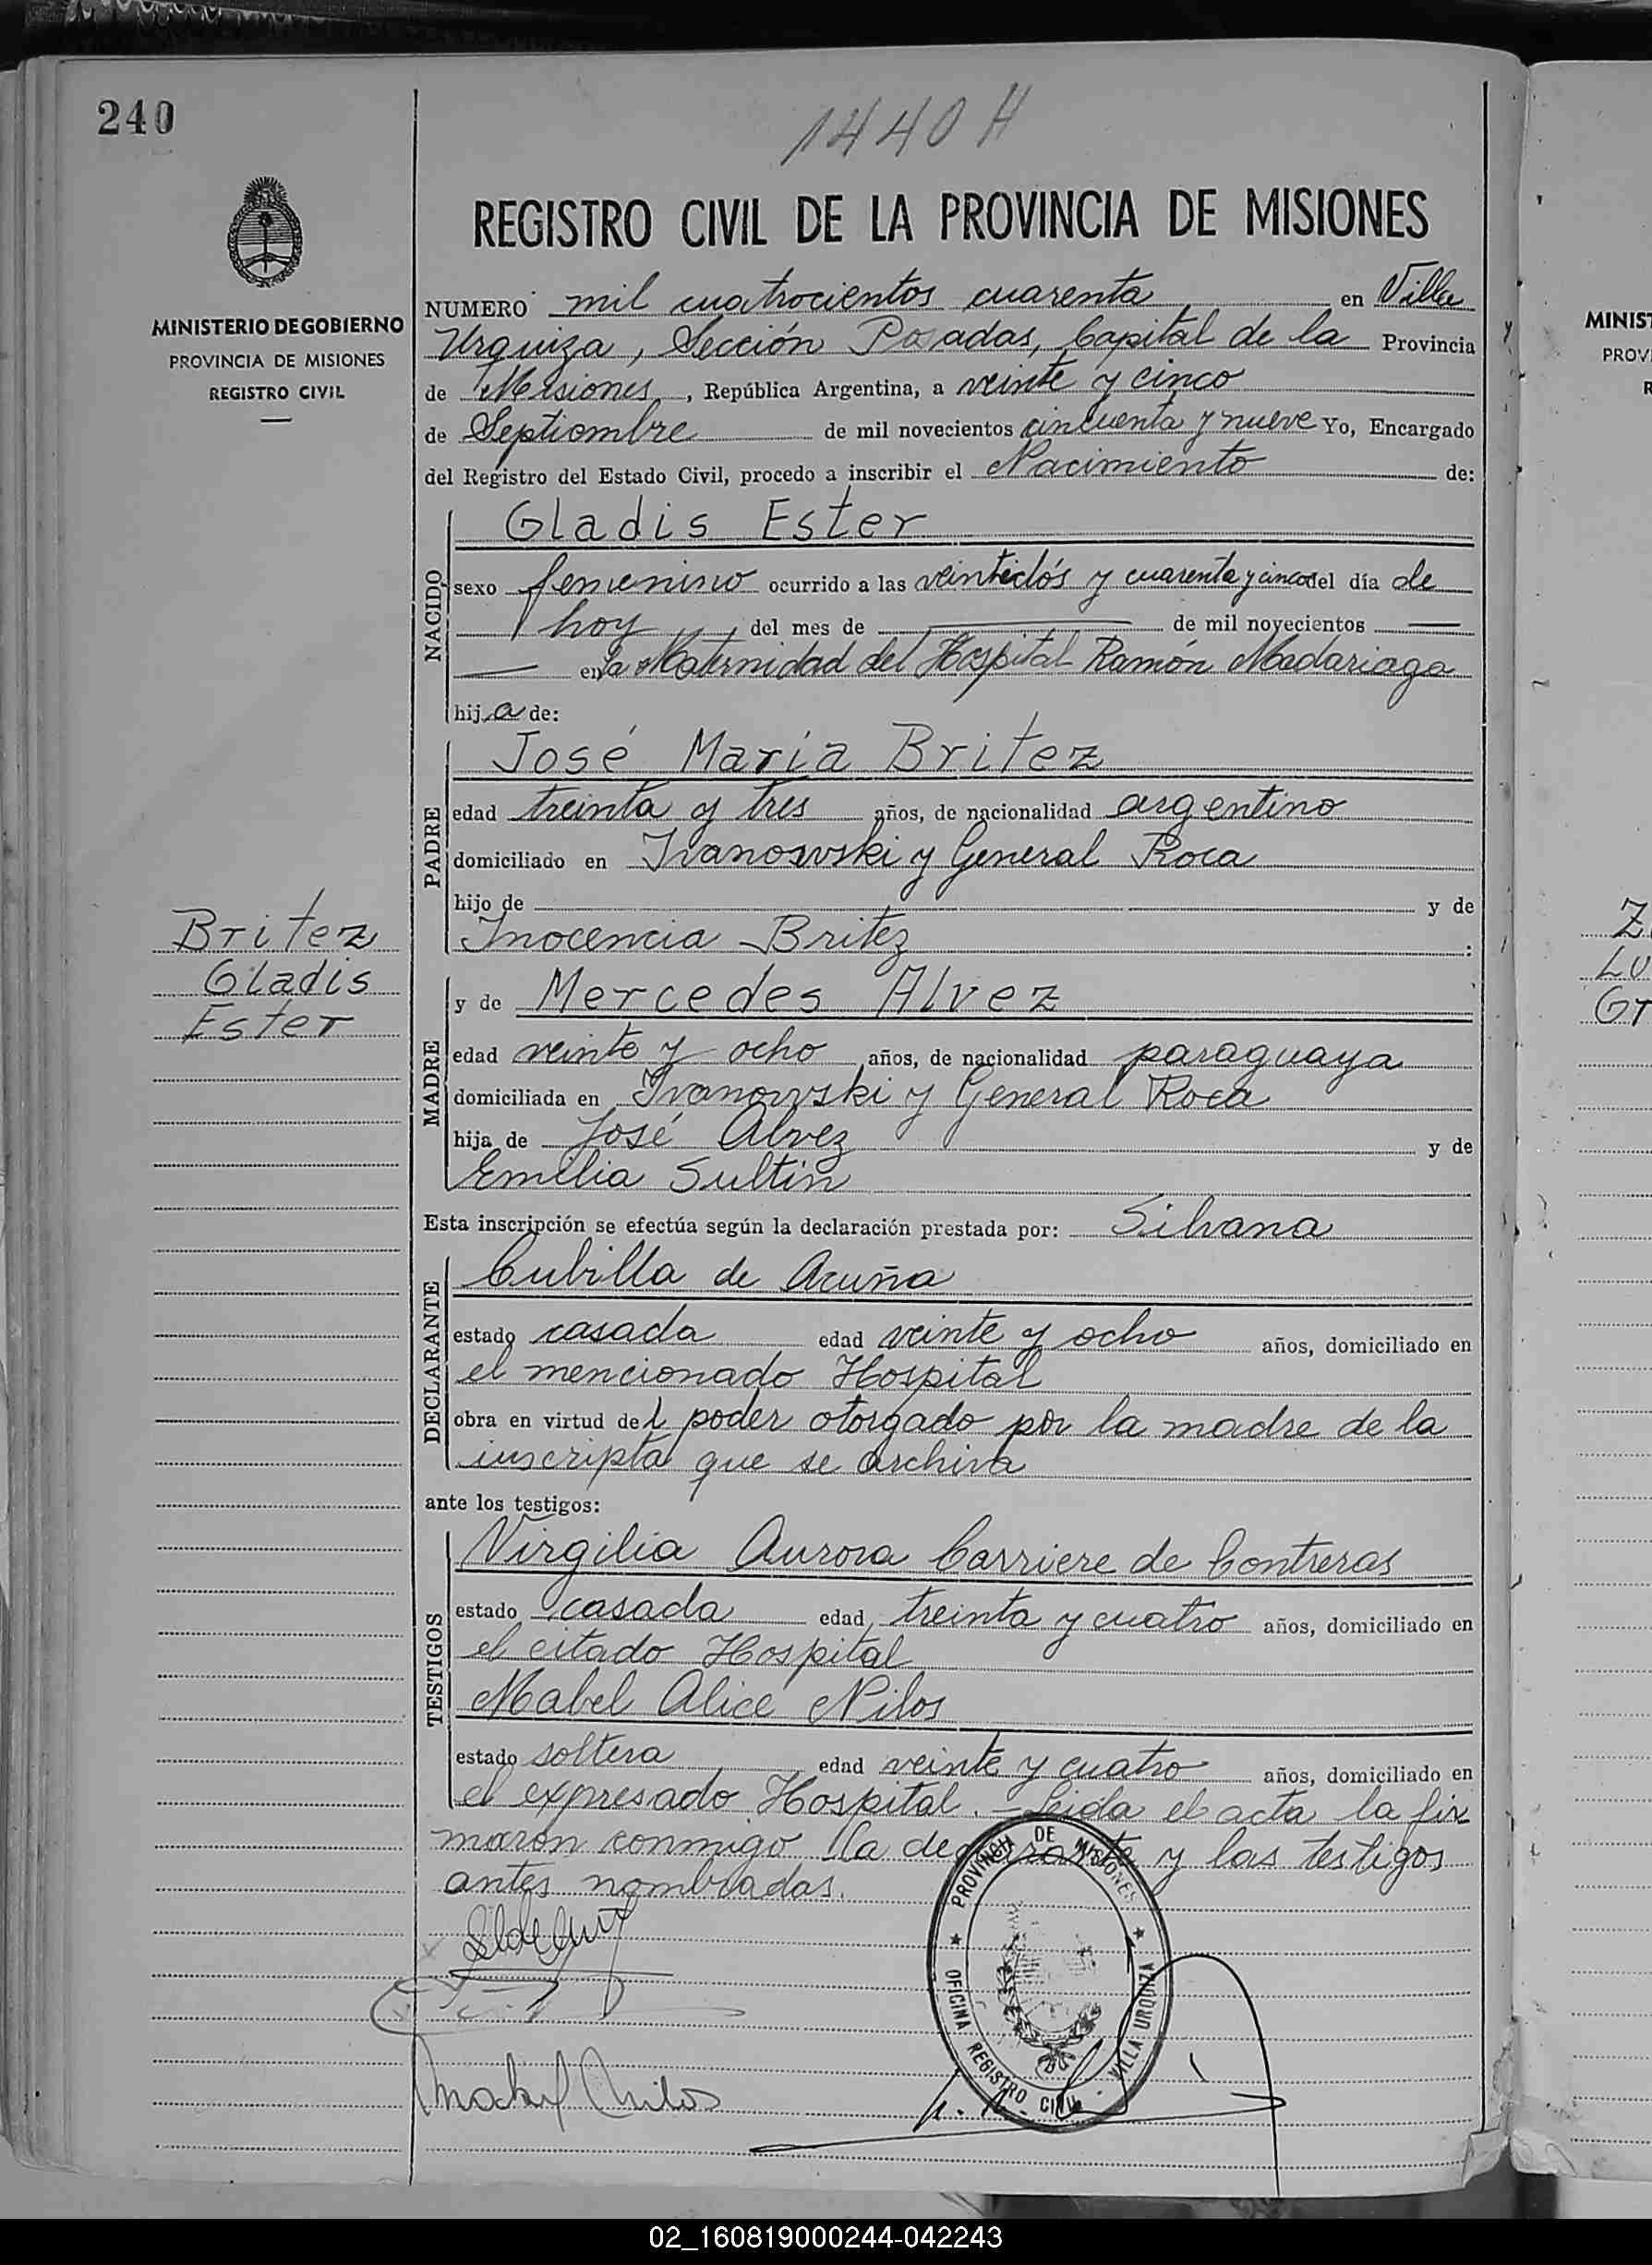 240
1440 H
REGISTRO CIVIL DE LA PROVINCIA DE MISIONES
MINISTERIO DE GOBIERNO
PROVINCIA DE MISIONES
REGISTRO CIVIL
NUMERO mil cuatrocientos cuarenta en Villa
Urquiza, Sección Posadas, Capital de la Provincia
de Misiones, República Argentina, a veinte y cinco
de Septiembre de mil novecientos cincuenta y nueve Yo, Encargado
del Registro del Estado Civil, procedo a inscribir el Nacimiento de:
NACIDO
Gladis Ester
sexo femenino ocurrido a las veintidós y cuarenta y cinco del día de
hoy del mes de — de mil novecientos —
— en la Maternidad del Hospital Ramón Madariaga
hija de:
PADRE
José María Britez
edad treinta y tres años, de nacionalidad argentino
domiciliado en Ivanowski y General Roca
hijo de y de
Inocencia Britez :
Britez
Gladis
Ester
MADRE
y de Mercedes Alvez
edad veinte y ocho años, de nacionalidad paraguaya
domiciliada en Ivanowski y General Roca
hija de José Alvez y de
Emilia Sultin
Esta inscripción se efectúa según la declaración prestada por: Silvana
DECLARANTE
Cubilla de Acuña
estado casada edad veinte y ocho años, domiciliado en
el mencionado Hospital
obra en virtud del poder otorgado por la madre de la
inscripta que se archiva
ante los testigos:
TESTIGOS
Virgilia Aurora Carriere de Contreras
estado casada edad treinta y cuatro años, domiciliado en
el citado Hospital
Mabel Alice Nilos
estado soltera edad veinte y cuatro años, domiciliado en
el expresado Hospital. — Leida el acta la fir
maron conmigo la declarante y las testigos
antes nombradas.
PROVINCIA DE MISIONES
OFICINA REGISTRO CIVIL - VILLA URQUIZA
Mabel Nilos
MINIST
PROVI
R
Z
LU
Gr
02_160819000244-042243